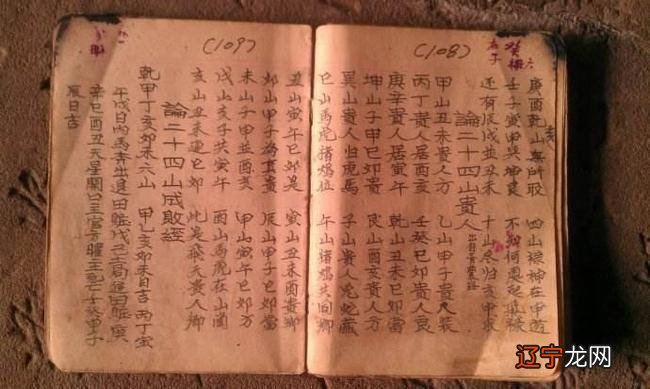 (108)
庚酉乾山無所取 四山禄神在甲遊
壬子寅甲巽坤艮 不知何處起
还有辰戌並丑未 十山尽归亥中求
論二十四山貴人 出自
甲山丑未貴人方 乙山甲子貴人装
丙丁貴人居酉亥 壬癸巳卯貴人良
庚辛貴人居寅午 乾山丑未巳卯當
坤山子甲巳卯貴 艮山酉亥貴人方
巽山貴人归虎馬 子山貴人兔蛇藏
巳山馬虎猪鸡位 午山猪鸡共回鄉
(109)
丑山寅午巳卯是 寅山丑未酉貴鄉
卯山甲子為真貴 辰山甲子巳卯當
未山子甲並酉亥 甲山寅午巳卯方
戌山亥子共寅午 酉山馬虎在山崗
亥山丑未連巳卯 此是飛天貴人鄉
論二十四山成敗經
乾甲丁亥卯未六山 甲乙亥卯未日吉 丙丁寅
午戌日內馬青出進田賬戊己二局進田賬庚
辛巳酉丑天星關主官方曜主死亡壬癸甲子
辰日吉
辽宁龙网